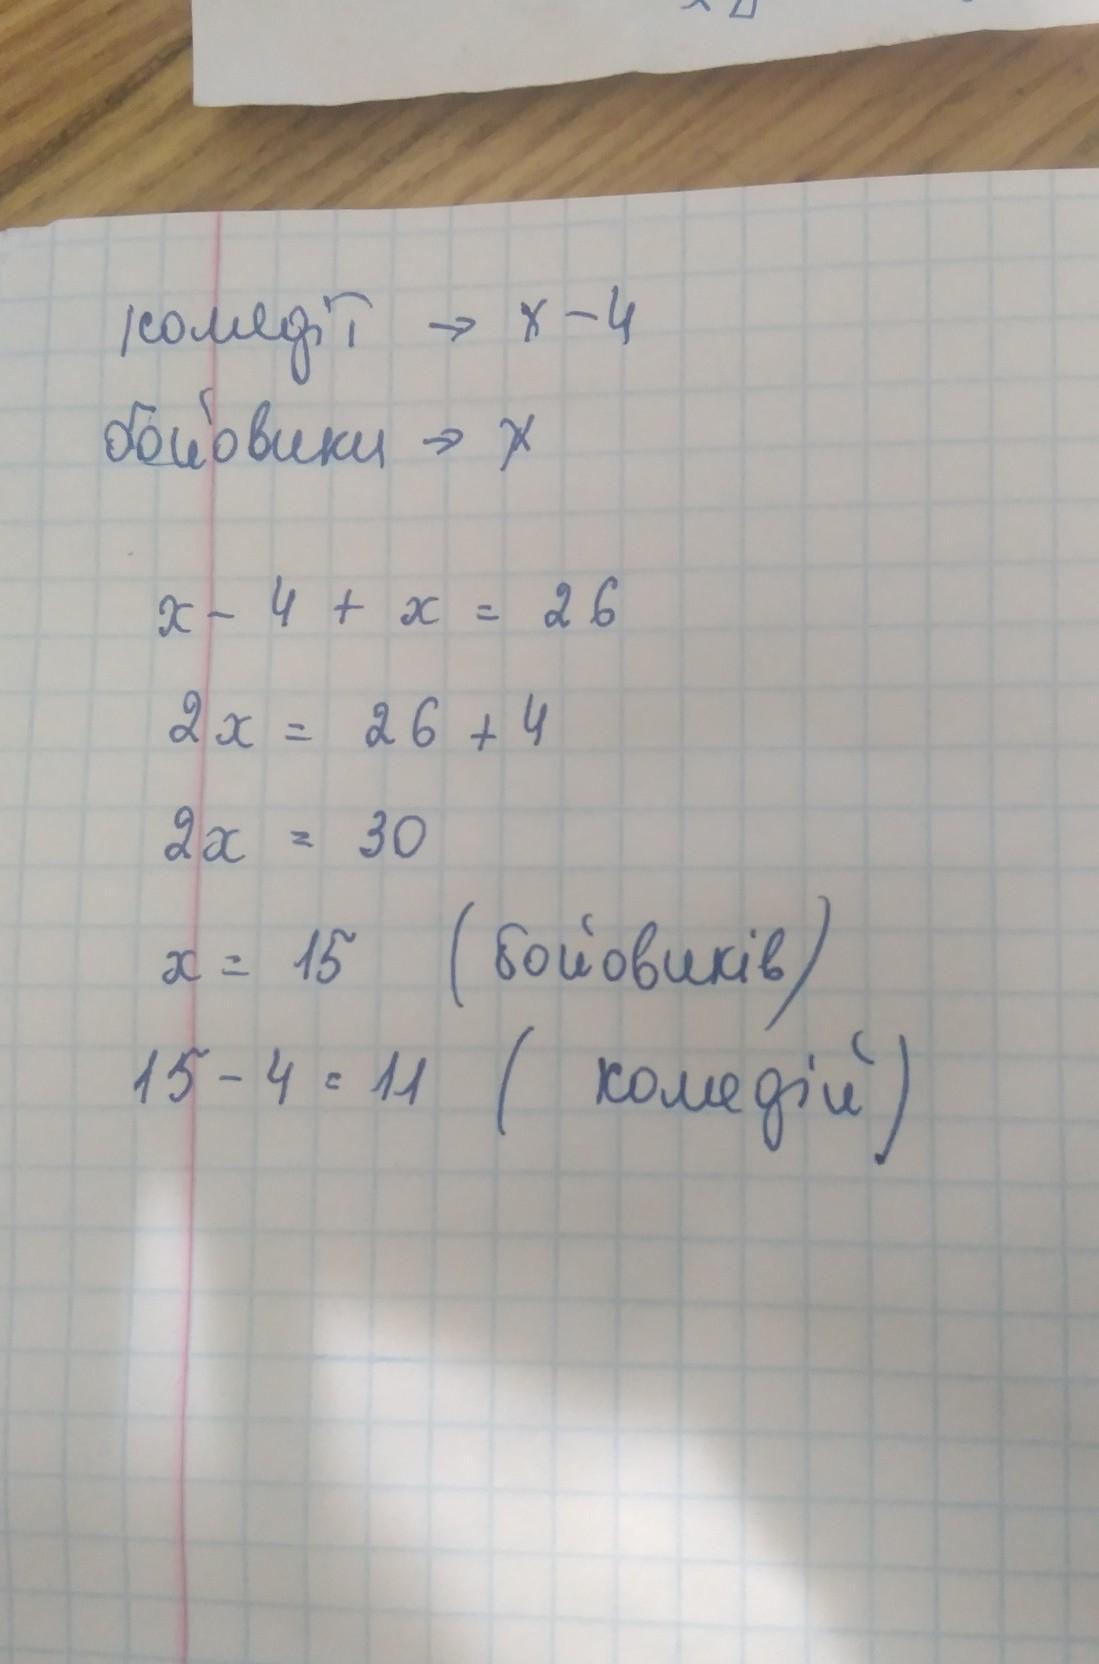 комедії → x - 4
бойовики → x
x - 4 + x = 26
2x = 26 + 4
2x = 30
x = 15 (бойовиків)
15 - 4 = 11 (комедій)